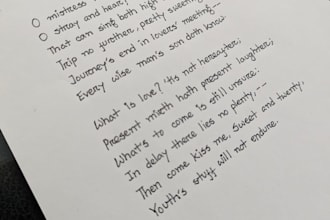 O mistress
O stray and hear;
That can sing both high
Trip no further, pretty sweeting
Journey's end in lovers' meeting--
Every wise man's son doth know.
What is love? 'tis not hereafter;
Present mirth hath present laughter;
What's to come is still unsure.
In delay there lies no plenty,--
Then come kiss me, Sweet and twenty,
Youth's stuff will not endure.